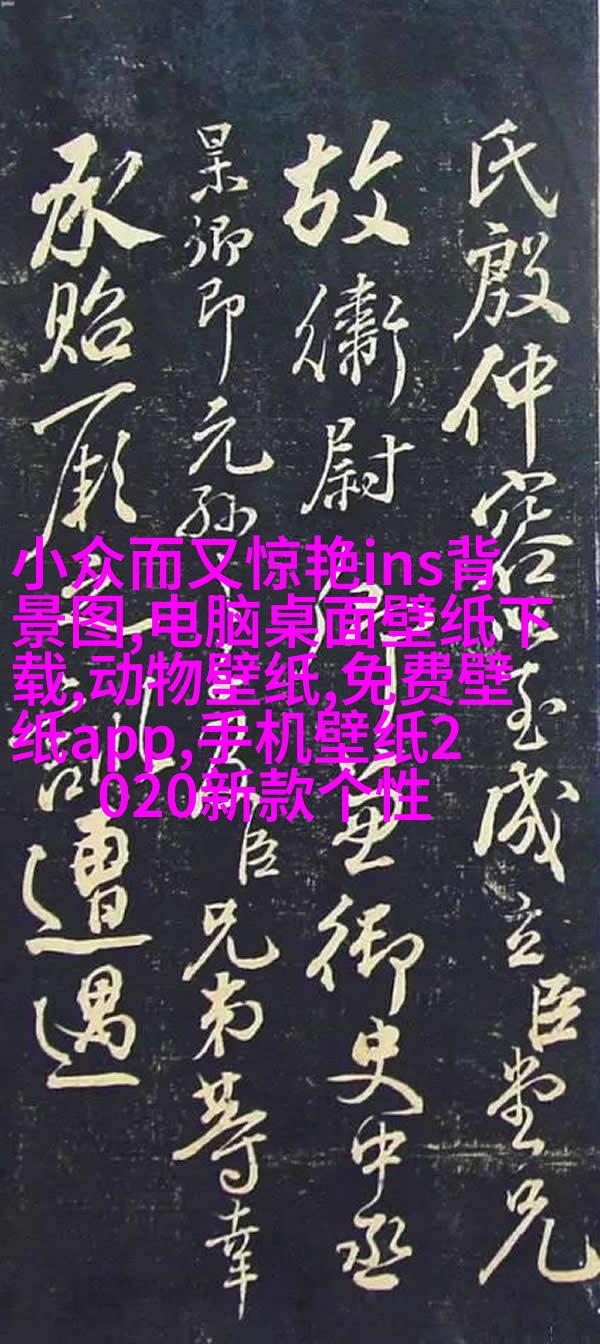 氏殷仲容至成立臣堂兄
故衛尉卿兼御史中丞
杲卿即元孫臣兄弟等幸
承貽厥之訓遭遇
小众而又惊艳ins背
景图,电脑桌面壁纸下
载,动物壁纸,免费壁
纸app,手机壁纸2
020新款个性